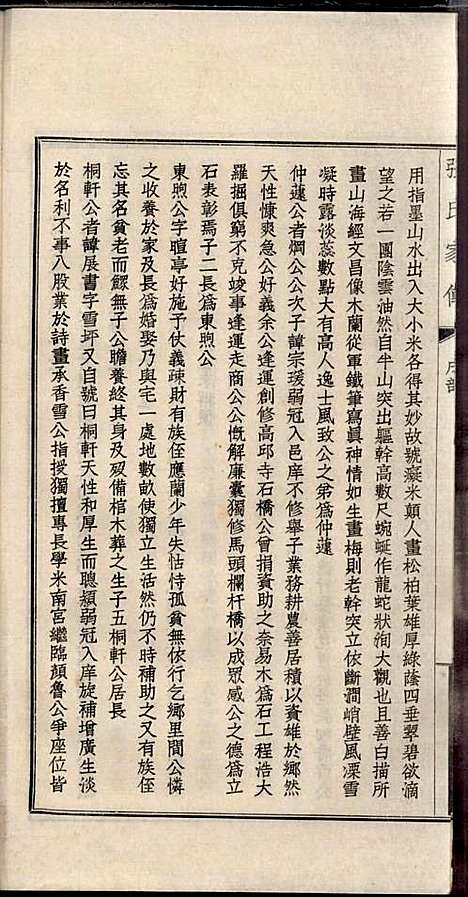 張氏家傳
用指墨山水出入大小米各得其妙故號癡米顛人畫松柏葉雄厚綠蔭四垂翠碧欲滴
望之若一團陰雲油然自半山突出軀幹高數尺蜿蜒作龍蛇狀洵大觀也且善白描所
畫山海經文昌像木蘭從軍鐵筆寫眞神情如生畫梅則老幹突立依斷澗峭壁風凜雪
凝時露淡蕊數點大有高人逸士風致公之弟爲仲蓮
仲蓮公者爓公公次子諱宗瑗弱冠入邑庠不修舉子業務耕農善居積以資雄於鄉然
天性慷爽急公好義余公逢運創修高邱寺石橋公曾捐資助之柰易木爲石工程浩大
羅掘俱窮不克竣事逢運走商公公慨解廉囊獨修馬頭欄杆橋以成眾感公之德爲立
石表彰焉子二長爲東煦公
東煦公字暄亭好施予仗義疎財有族侄應蘭少年失怙恃孤貧無依行乞鄉里間公憐
之收養於家及長爲婚娶乃與宅一處地數畝使獨立生活然仍不時補助之又有族侄
忘其名貧老而鰥無子公贍養終其身及歿備棺木葬之生子五桐軒公居長
桐軒公者諱展書字雪坪又自號曰桐軒天性和厚生而聰潁弱冠入庠旋補增廣生淡
於名利不事八股業於詩畫承香雪公指授獨擅專長學米南宮繼臨顏魯公爭座位皆